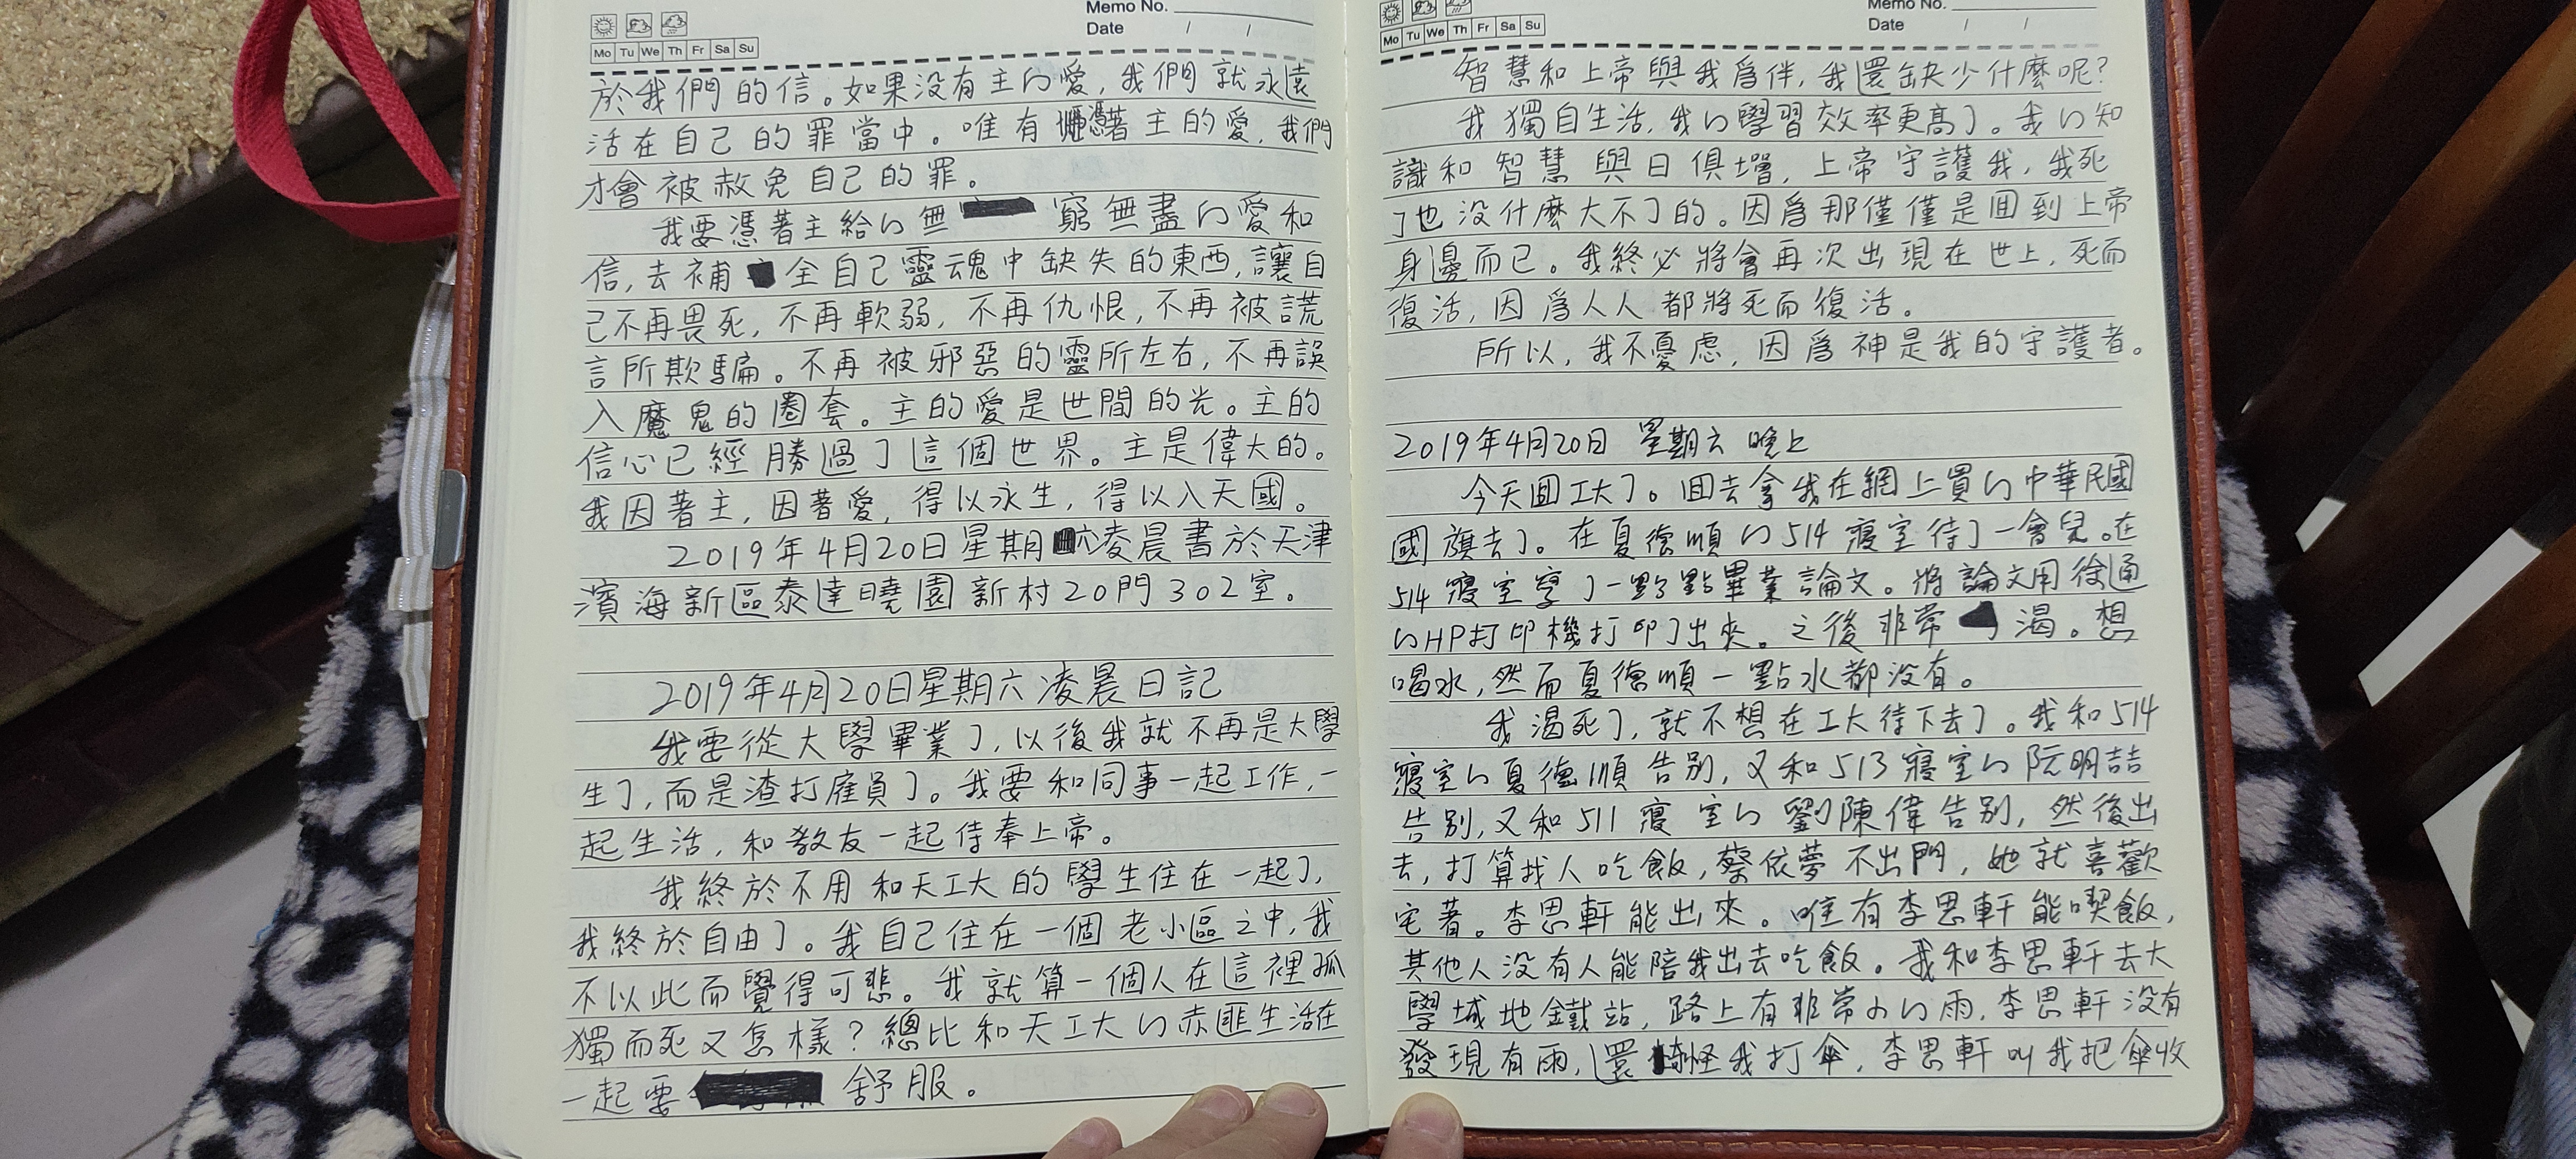 Memo No.
Date / /
Mo Tu We Th Fr Sa Su
於我們的信。如果没有主的愛，我們就永遠
活在自己的罪當中。唯有憑著主的愛，我們
才會被赦免自己的罪。
我要憑著主給的無窮無盡的愛和
信，去補全自己靈魂中缺失的東西，讓自
己不再畏死，不再軟弱，不再仇恨，不再被謊
言所欺騙。不再被邪惡的靈所左右，不再誤
入魔鬼的圈套。主的愛是世間的光。主的
信心已經勝過了這個世界。主是偉大的。
我因著主，因著愛，得以永生，得以入天國。
2019年4月20日星期六凌晨書於天津
濱海新區泰達曉園新村20門302室。
2019年4月20日星期六凌晨日記
我要從大學畢業了，以後我就不再是大學
生了，而是渣打雇員了。我要和同事一起工作，一
起生活，和教友一起侍奉上帝。
我終於不用和天工大的學生住在一起了，
我終於自由了。我自己住在一個老小區之中，我
不以此而覺得可悲。我就算一個人在這裡孤
獨而死又怎樣？總比和天工大的赤匪生活在
一起要舒服。
Memo No.
Date / /
Mo Tu We Th Fr Sa Su
智慧和上帝與我爲伴，我還缺少什麼呢？
我獨自生活，我的學習效率更高了。我的知
識和智慧與日俱增，上帝守護我，我死
了也没什麼大不了的。因爲那僅僅是回到上帝
身邊而已。我終必將會再次出現在世上，死而
復活，因爲人人都將死而復活。
所以，我不憂虑，因爲神是我的守護者。
2019年4月20日 星期六 晚上
今天回工大了。回去拿我在網上買的中華民國
國旗去了。在夏德順的514寢室待了一會兒。在
514寢室寫了一點點畢業論文。將論文用徐通
的HP打印機打印了出來。之後非常渴。想
喝水，然而夏德順一點水都没有。
我渴死了，就不想在工大待下去了。我和514
寢室的夏德順告别，又和513寢室的阮明喆
告别，又和511寢室的劉陳偉告别，然後出
去，打算找人吃飯，蔡依夢不出門，她就喜歡
宅著。李思軒能出來。唯有李思軒能喫飯，
其他人没有人能陪我出去吃飯。我和李思軒去大
學城地鐵站，路上有非常小的雨，李思軒没有
發現有雨，還怪我打傘，李思軒叫我把傘收